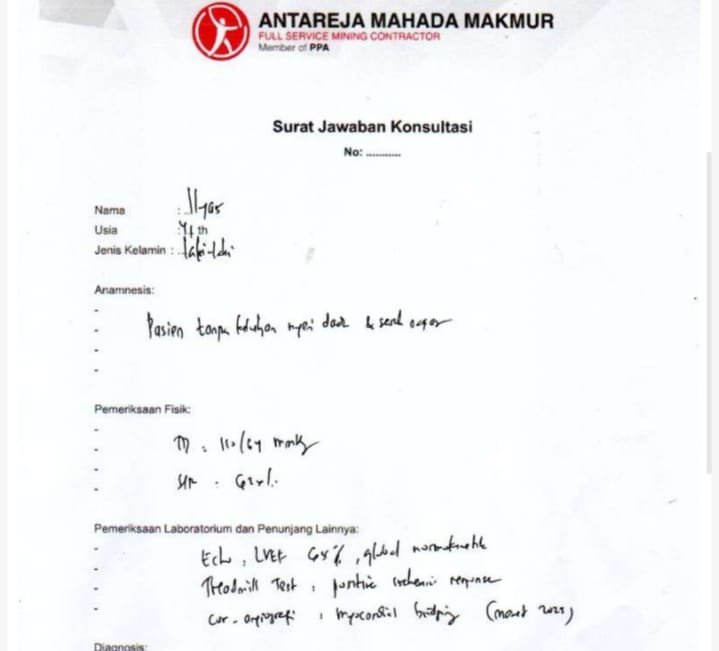 ANTAREJA MAHADA MAKMUR
FULL SERVICE MINING CONTRACTOR
Member of PPA
Surat Jawaban Konsultasi
No: ...........
Nama : Ilyas
Usia : th
Jenis Kelamin : laki-laki
Anamnesis:
-
- Pasien tanpa keluhan nyeri dada & sesak
-
-
Pemeriksaan Fisik:
-
- TD : 110/64 mmHg
- HR : 62x/.
-
Pemeriksaan Laboratorium dan Penunjang Lainnya:
- Echo, LVEF 65%, global normokinetik
- Treadmill Test : positive ischemic response
- Cor-angiografi : myocardial bridging (maret)
-
Diagnosis: